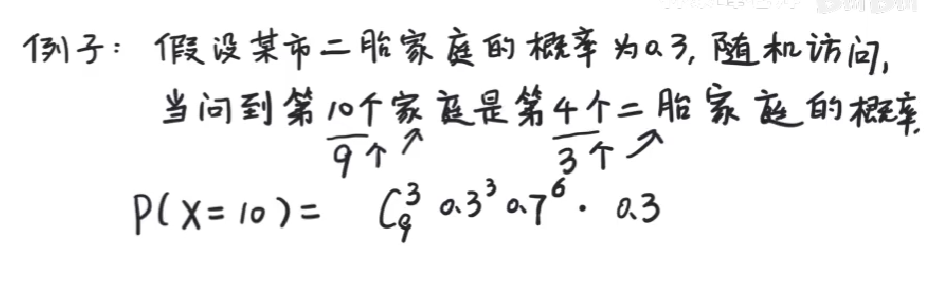 例子：假设某市二胎家庭的概率为0.3，随机访问，
当问到第10个家庭是第4个二胎家庭的概率.
9个↗ 3个↗
P(X=10)= C₉³ 0.3³ 0.7⁶ · 0.3